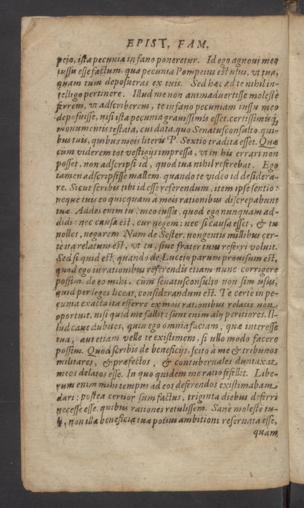 EPIST. FAM.
pejo, ista pecunia in fano poneretur. Id ego agnovi meo
iussu esse factum. qua pecunia Pompeius est usus, ut tua,
quam tum deposueras ex tuis. Sed hæc ad te nihil in-
telligo pertinere. Illud me non animadvertisse molestè
ferrem, ut adscriberem, te in fano pecuniam iussu meo
deposuisse, nisi ista pecunia gravissimis esset, certissimisq;
monumentis testata, cui data, quo Senatusconsulto, qui-
bus tuis, quibus meis literis P. Sextio tradita esset. Quæ
cum viderem tot vestigiis impressa, ut in his errari non
posset, non adscripsi id, quod tua nihil referebat. Ego
tamen adscripsisse mallem, quando te video id desidera-
re. Sicut scribis tibi id esse referendum, item ipse sentio:
neque in eo quicquam a meis rationibus discrepabunt
tuæ. Addes enim tu, meo iussu, quod ego nunquam ad-
didi: nec causa est, cur negem: nec si causa esset, & tu
nolles, negarem. Nam de Sester. nongentis millibus cer-
te ita relatum est, ut tu, sive frater tuus referri voluit.
Sed si quid est, quando de Luceio parum provisum est,
quod ego in rationibus referendis etiam nunc corrigere
possim, de eo mihi, cum senatusconsulto non sim usus,
quid per leges liceat, considerandum est. Te certe in pe-
cunia exacta ita efferre ex meis rationibus relatis non
oportuit, nisi quid me fallit: sunt enim alij peritiores. Il-
lud cave dubites, quin ego omnia faciam, quæ interesse
tua, aut etiam velle te existimem, si ullo modo facere
possim. Quod scribis de beneficijs, scito à me & tribunos
militares, & præfectos, & contubernales duntaxat
meos delatos esse. In quo quidem me ratio fefellit. Libe-
rum enim mihi tempus ad eos deferendos existimabam
dari: postea certior sum factus, triginta diebus deferri
necesse esse, quibus rationes retulissem. Sanè molestè tu-
li, non illa beneficia tuæ potius ambitioni reservata esse,
quam